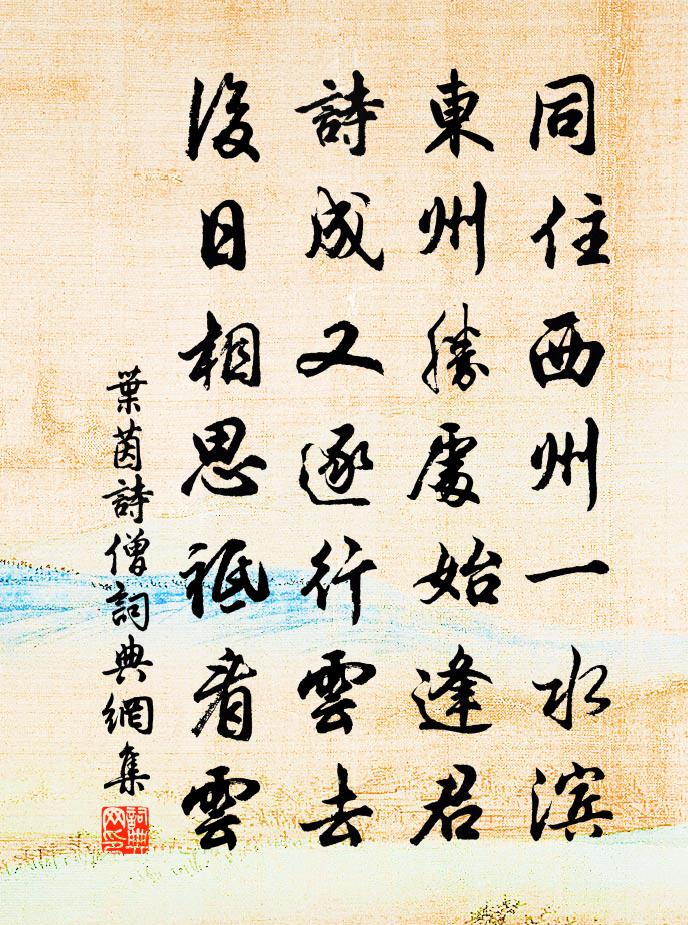 同住西州一水滨
東州勝處始逢君
詩成又逐行雲去
後日相思祗看雲
葉茵詩僧詞典網集
詞典網印